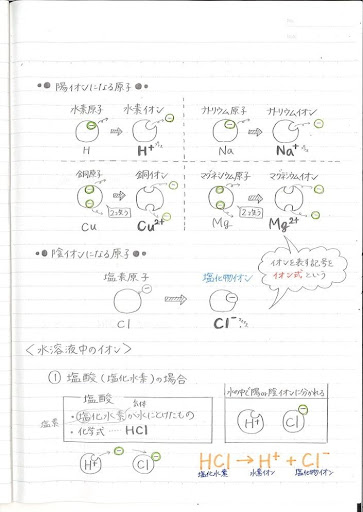 陽イオンになる原子
水素原子 水素イオン ナトリウム原子 ナトリウムイオン
H H+ Na Na+
銅原子 銅イオン マグネシウム原子 マグネシウムイオン
2つ失う 2つ失う
Cu Cu2+ Mg Mg2+
陰イオンになる原子
イオンを表す記号を
イオン式という
塩素原子 塩化物イオン
Cl Cl-
<水溶液中のイオン>
① 塩酸(塩化水素)の場合
水の中で陽or陰イオンに分かれる
塩酸
気体
・塩化水素が水にとけたもの
・化学式 …… HCl
塩素
H+ Cl
H+ Cl
HCl → H+ + Cl-
塩化水素 水素イオン 塩化物イオン